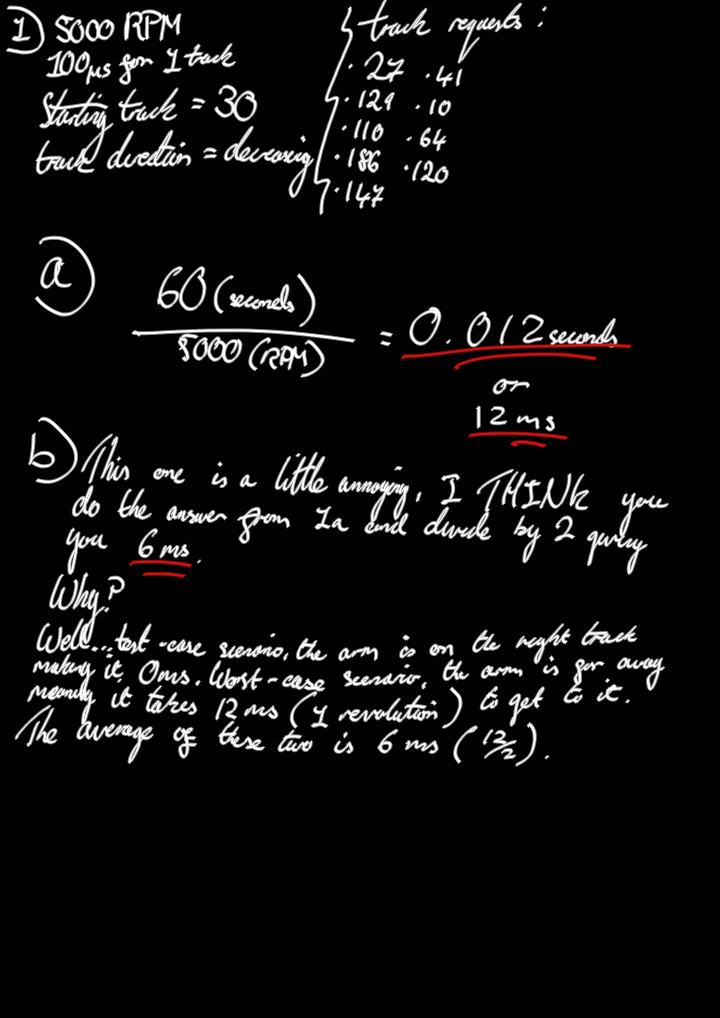 1) 5000 RPM
100μs for 1 track
Starting track = 30
track direction = decreasing
track requests :
· 27 · 41
· 129 · 10
· 110 · 64
· 186 · 120
· 147
a)
60 (seconds)
5000 (RPM)
= 0.012 seconds
or
12 ms
b) This one is a little annoying, I THINK you
do the answer from 1a and divide by 2 giving
you 6 ms.
Why?
Well... best-case scenario, the arm is on the right track
making it 0ms. Worst-case scenario, the arm is far away
meaning it takes 12 ms (1 revolution) to get to it.
The average of these two is 6 ms (12/2).